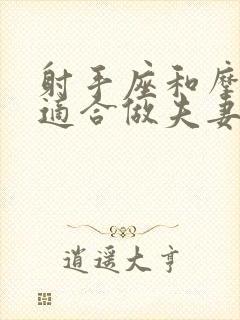 射手座和
适合做夫妻
逍遥大亨